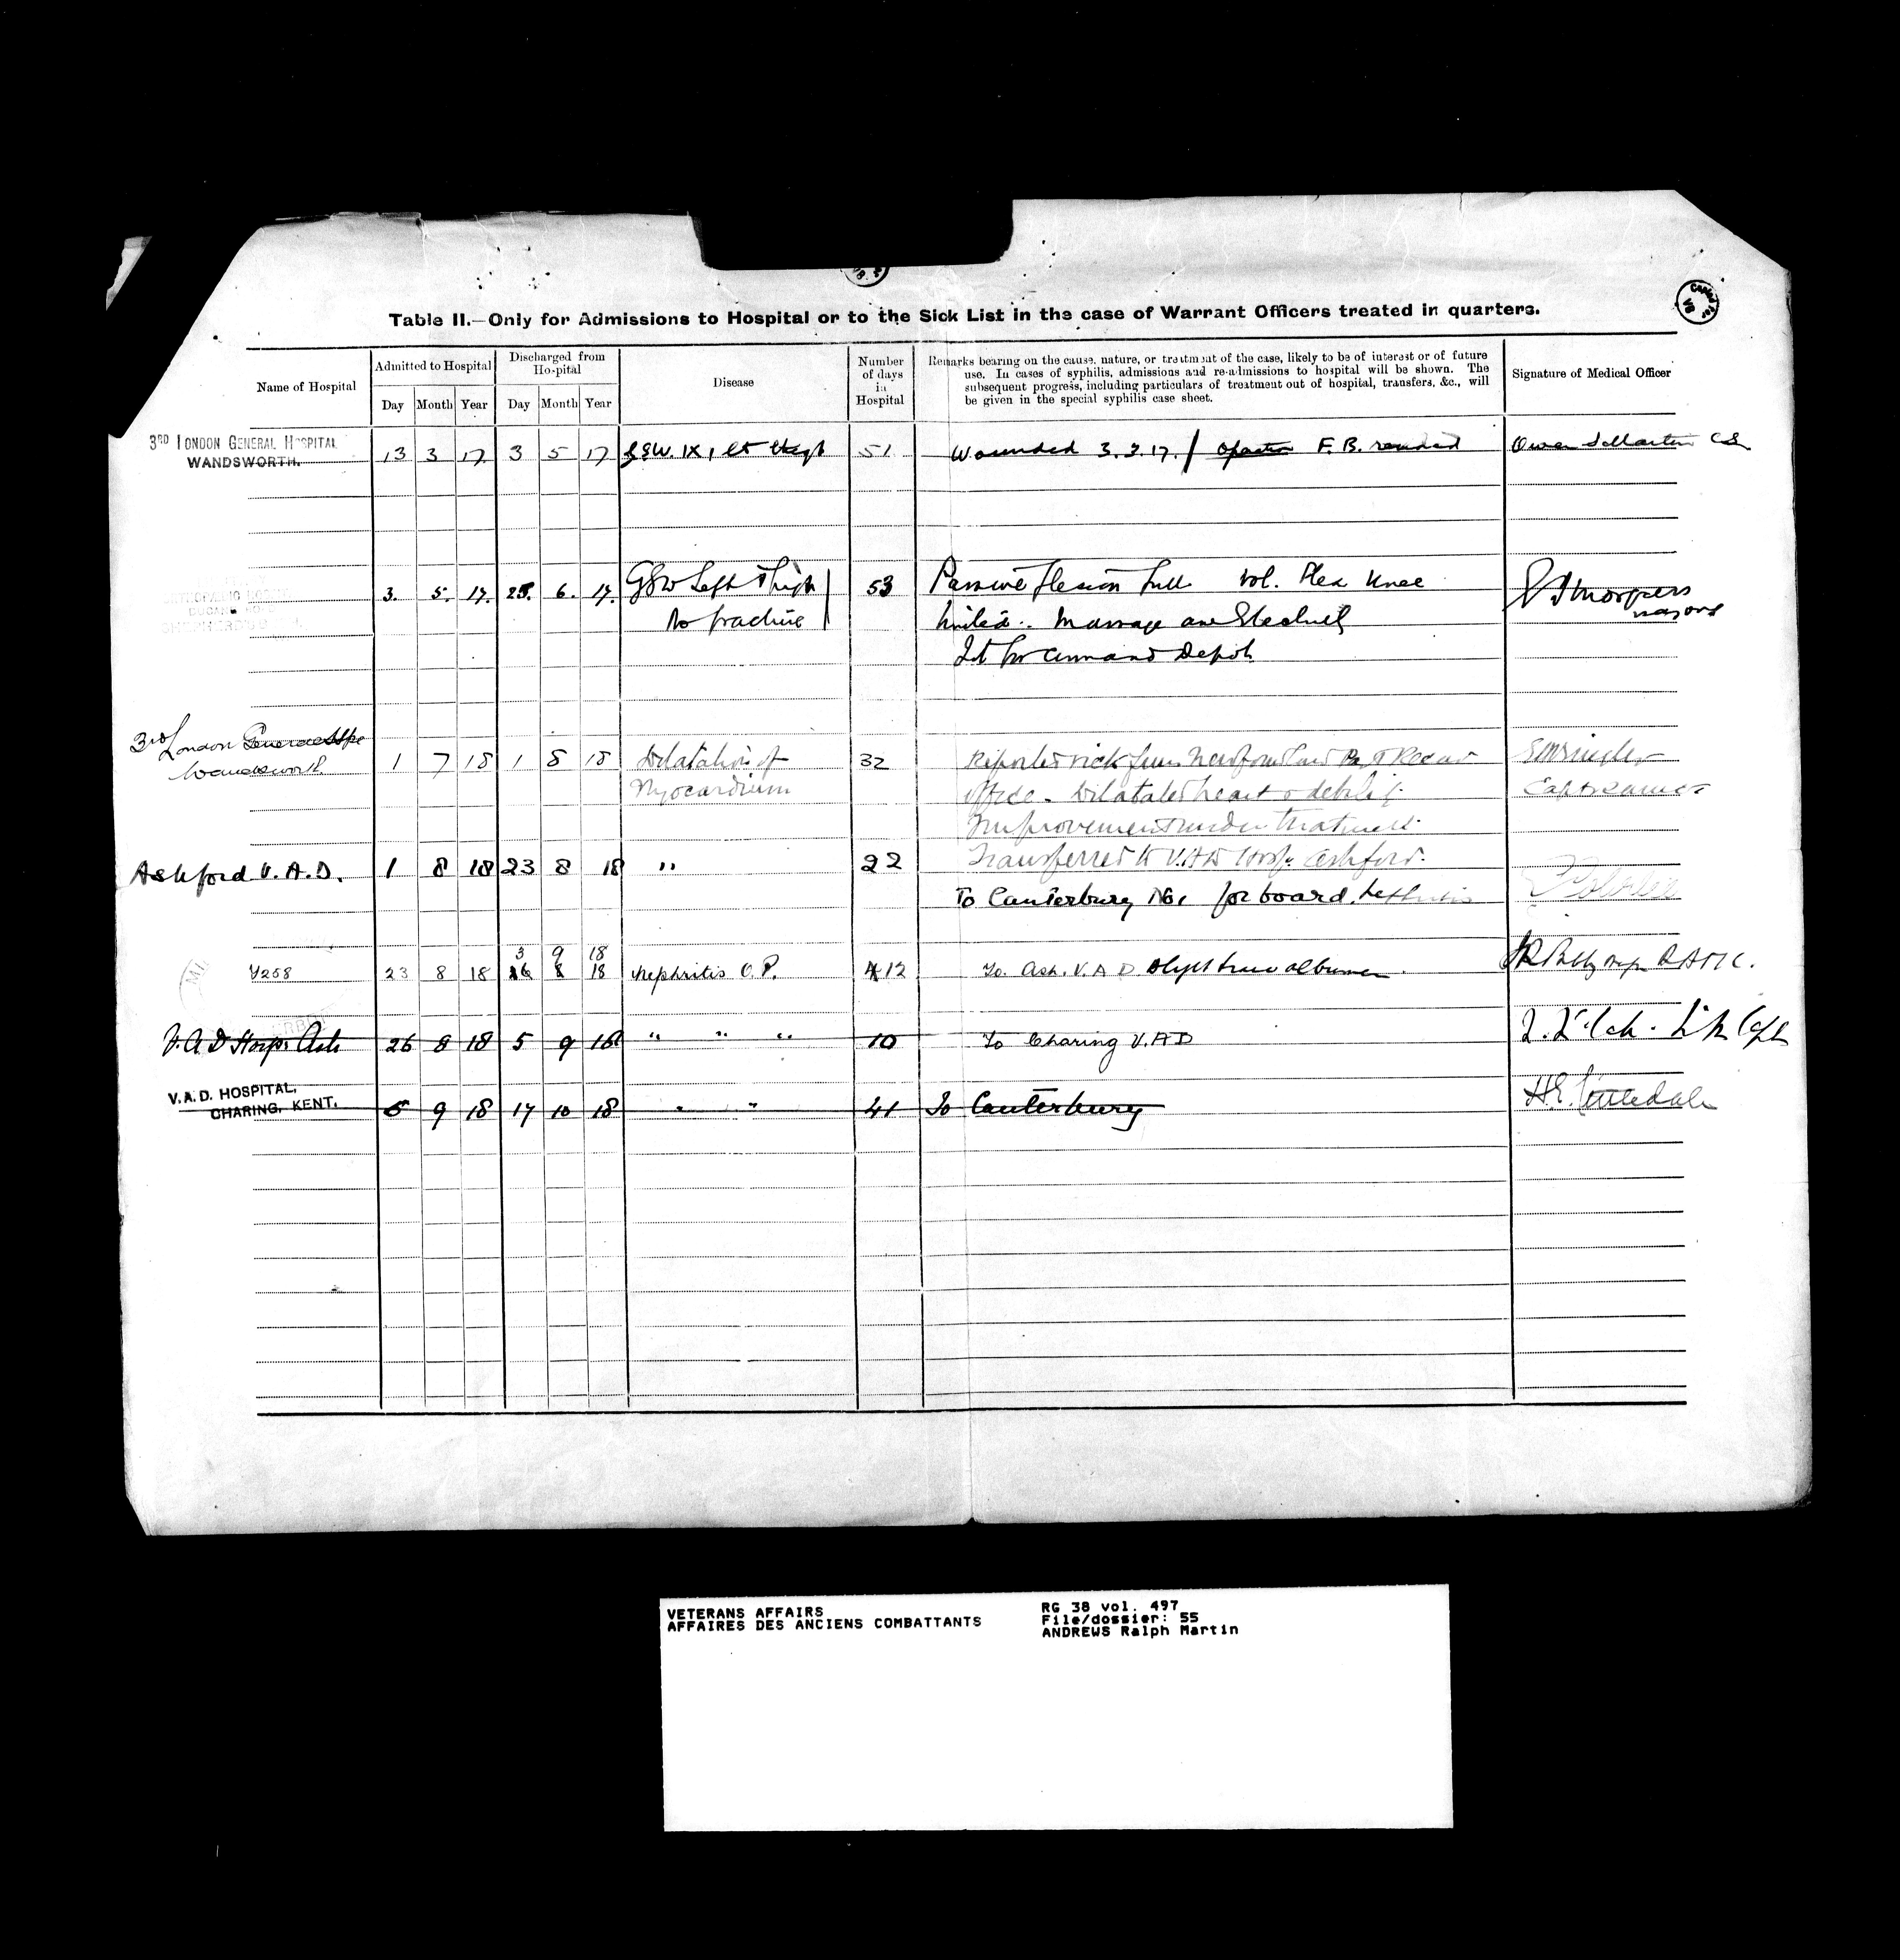 Table II.—Only for Admissions to Hospital or to the Sick List in the case of Warrant Officers treated in quarters.
Name of Hospital
Admitted to Hospital
Discharged from Hospital
Disease
Number of days in Hospital
Remarks bearing on the cause, nature, or treatment of the case, likely to be of interest or of future
use. In cases of syphilis, admissions and re-admissions to hospital will be shown. The
subsequent progress, including particulars of treatment out of hospital, transfers, &c., will
be given in the special syphilis case sheet.
Signature of Medical Officer
Day Month Year Day Month Year
3RD LONDON GENERAL HOSPITAL
WANDSWORTH.
13 3 17 3 5 17 G.S.W. IX, 1 lt thigh 51 Wounded 3.3.17. / Operation F.B. removed Owen
3. 5. 17. 25. 6. 17. GSW Left Thigh 53 Passive flexion full Vol. Flex Knee
No fracture limited. Massage
Fit for Command Depot
3rd London General Hosp
Wandsworth 1 7 18 1 8 18 Dilatation of 32 Reported sick from Newfoundland Record
Myocardium office. Dilated heart & debility Capt
Improvement under treatment.
Transferred to V.A.D Hosp. Ashford.
Ashford V.A.D. 1 8 18 23 8 18 " 22
To Canterbury No1 for board.
3 9 18
Y258 23 8 18 26 8 18 Nephritis O.P. 4 12 To Ash. V.A.D slight trace albumen. RAMC.
V.A.D Hosp. Ash 26 8 18 5 9 18 " " " 10 To Charing V.A.D
V.A.D. HOSPITAL,
CHARING, KENT. 5 9 18 17 10 18 " " 41 To Canterbury H.E.
VETERANS AFFAIRS
AFFAIRES DES ANCIENS COMBATTANTS
RG 38 vol. 497
File/dossier: 55
ANDREWS Ralph Martin